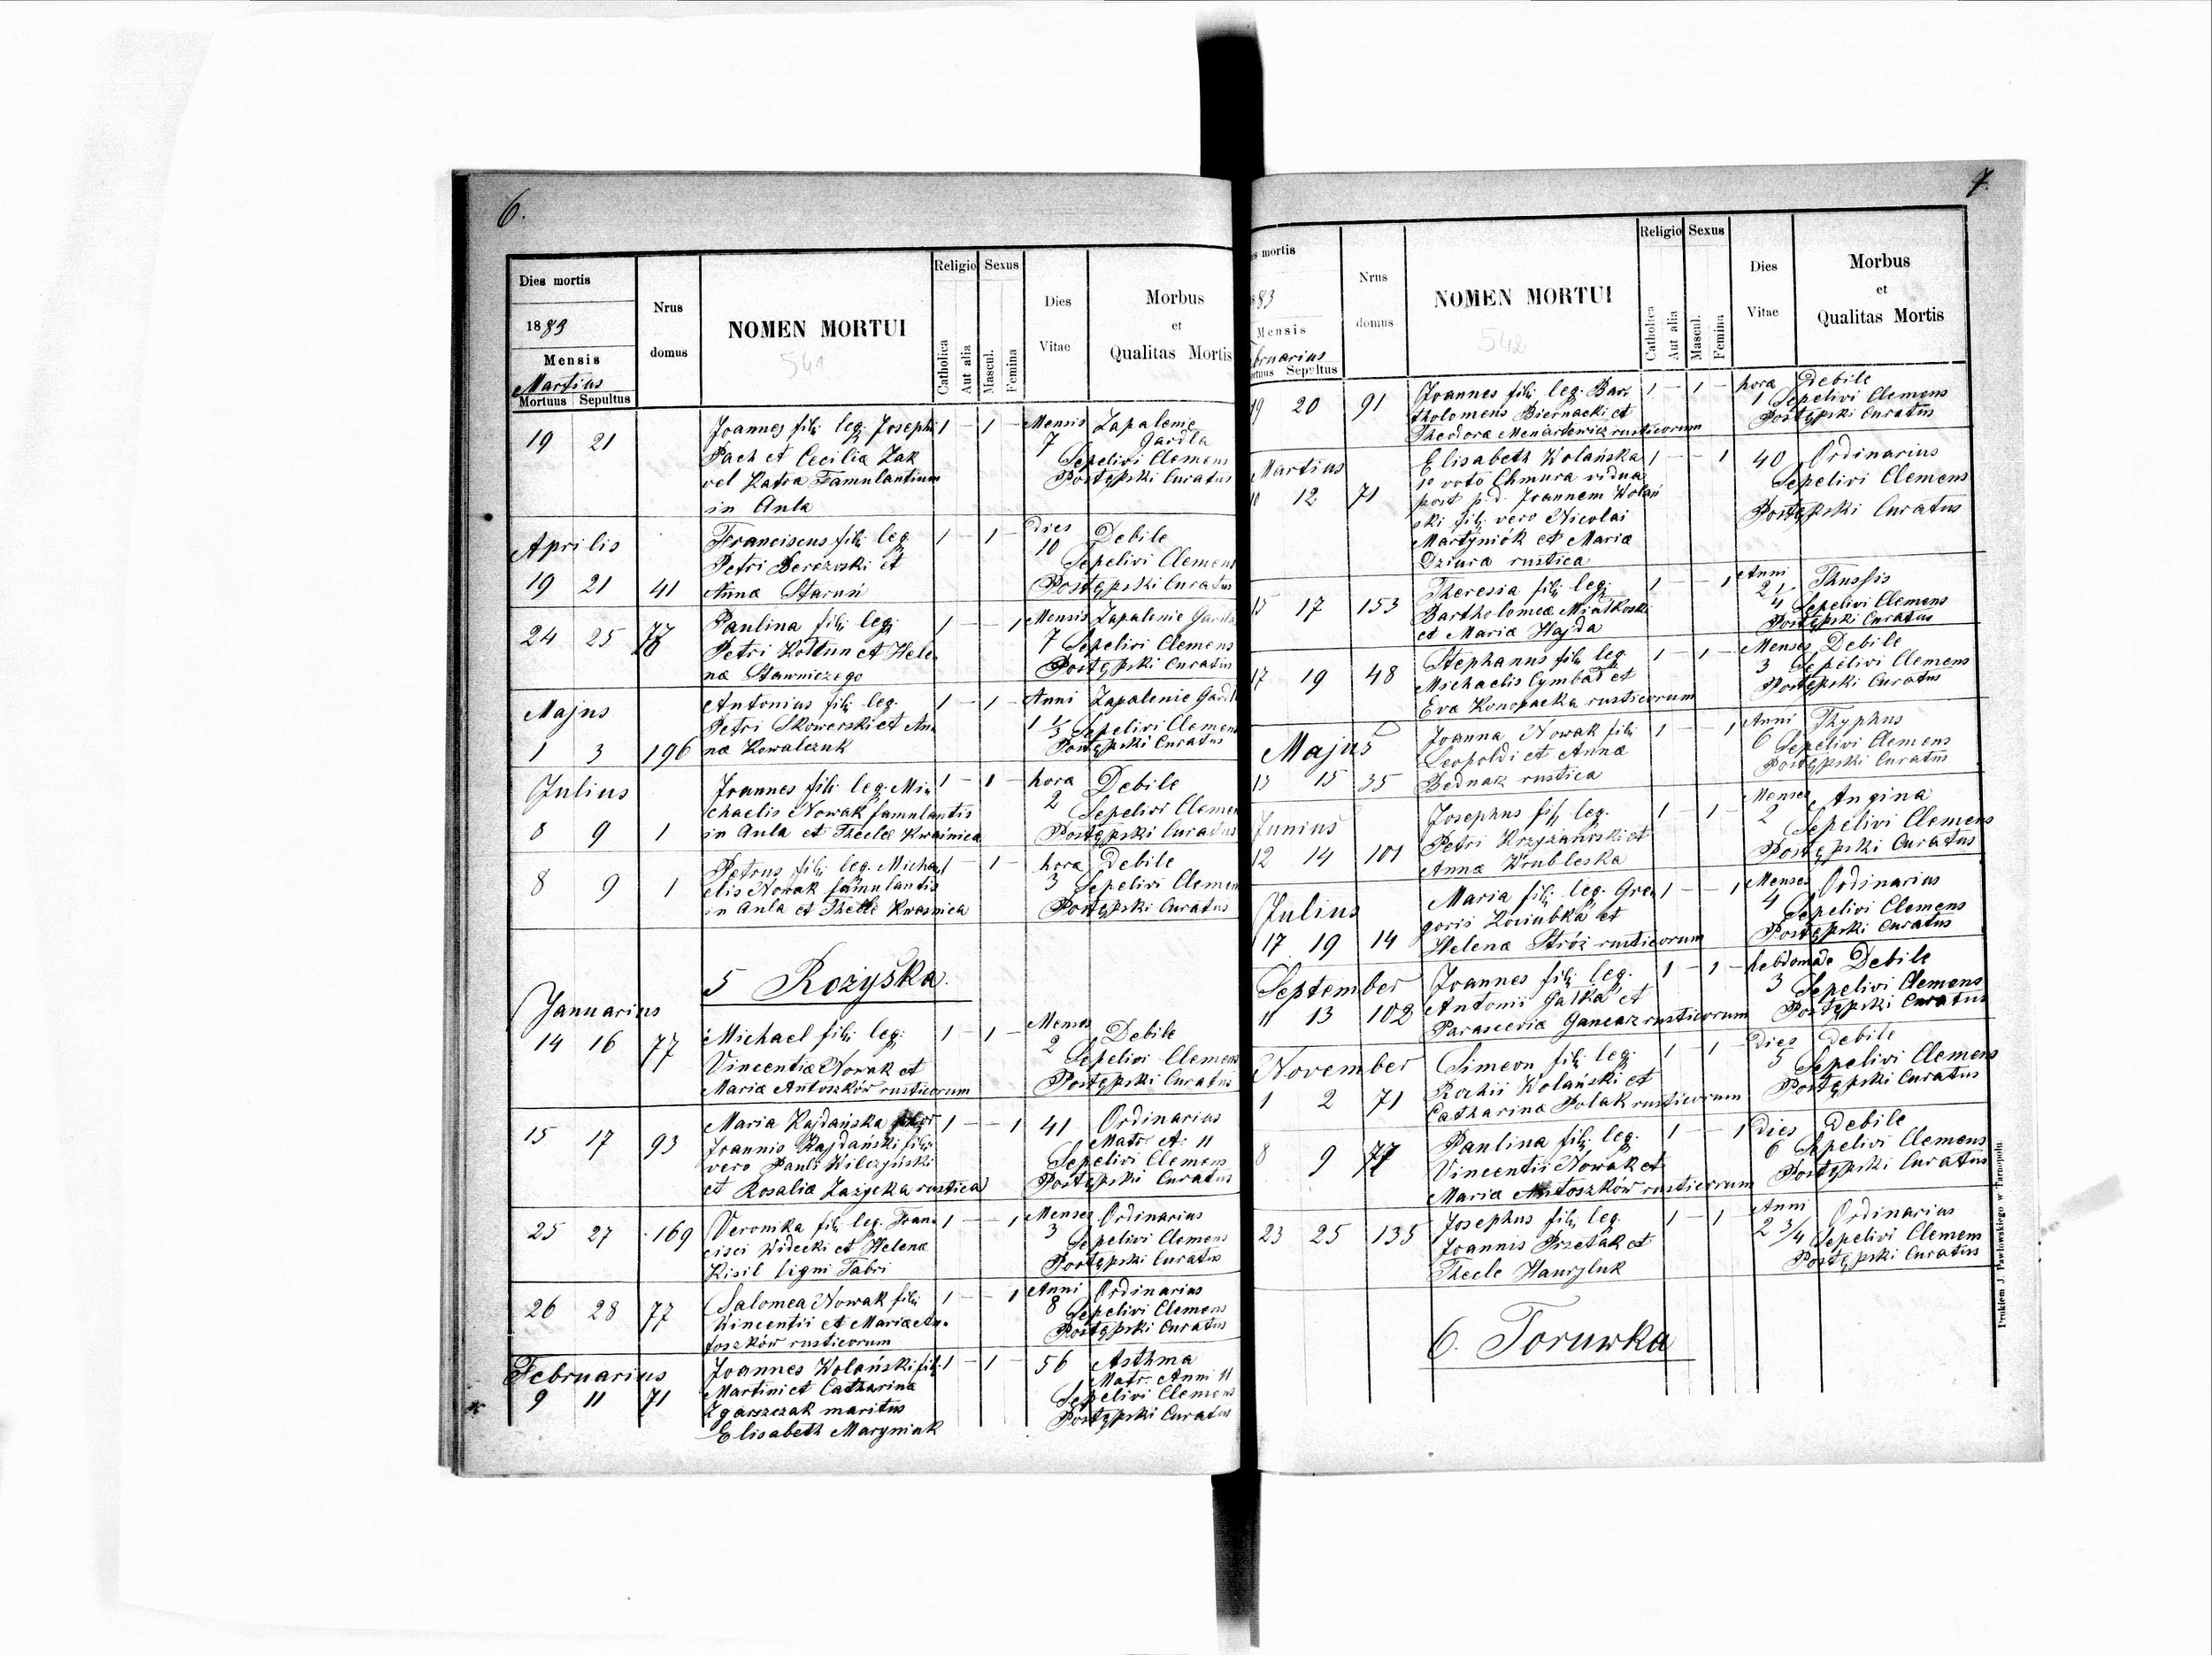 6.
Dies mortis
1883
Mensis
Martius
Mortuus Sepultus
Nrus domus
NOMEN MORTUI
541
Religio
Catholica
Aut alia
Sexus
Mascul.
Femina
Dies Vitae
Morbus
et
Qualitas Mortis
19 21 Joannes fili leg. Josephi 1 – 1 – Mensis 7 Zapalenie
Pach et Cecilia Zak Gardla
vel Katra Famulantium Sepelivi Clemens
in Aula Postępski Curatus
Aprilis
19 21 41 Franciscus fili leg. 1 – 1 – Dies 10 Debile
Petri Berezoski et Sepelivi Clemens
Anna Staruń Postępski Curatus
24 25 77 Paulina fili leg. 1 – – 1 Mensis 7 Zapalenie Gardla
Petri Kołtun et Hele- Sepelivi Clemens
na Stawniczego Postępski Curatus
Majus
1 3 196 Antonius fili leg. 1 – 1 – Anni 1 1/3 Zapalenie Gardl
Petri Skowerski et An- Sepelivi Clemens
na Kowalczuk Postępski Curatus
Julius
8 9 1 Joannes fili leg. Mi- 1 – 1 – hora 2 Debile
chaelis Nowak famulantis Sepelivi Clemen
in Aula et Theclæ Kwaśnica Postępski Curatus
8 9 1 Petrus fili leg. Micha- 1 – 1 – hora 3 Debile
elis Nowak famulantis Sepelivi Clemen
in Aula et Thecle Kwasnica Postępski Curatus
5 Rożyska.
Januarius
14 16 77 Michael fili leg. 1 – 1 – Menses 2 Debile
Vincentiæ Nowak et Sepelivi Clemens
Maria Antoszków rusticorum Postępski Curatus
15 17 93 Maria Rajdańska 1 – – 1 41 Ordinarius
Joannis Rajdański filia Matr. A. 11
vero Pauli Wilczyński Sepelivi Clemens
et Rosalia Zazycka rustica Postępski Curatus
25 27 169 Veronika fili leg. Fran- 1 – – 1 Menses 3 Ordinarius
cisci Widecki et Helena Sepelivi Clemens
Kisil ligni Fabri Postępski Curatus
26 28 77 Salomea Nowak fili 1 – – 1 Anni 8 Ordinarius
Vincentii et Mariæ An- Sepelivi Clemens
toszków rusticorum Postępski Curatus
Februarius
9 11 71 Joannes Wolański fili 1 – 1 – 56 Asthma
Martini et Catharina Matr. Anni 11
Zgarszczak maritus Sepelivi Clemens
Elisabeth Maryniak Postępski Curatus
7.
s mortis
83
Mensis
bruarius
ortuus Sepultus
Nrus domus
NOMEN MORTUI
542
Religio
Catholica
Aut alia
Sexus
Mascul.
Femina
Dies Vitae
Morbus
et
Qualitas Mortis
19 20 91 Joannes fili leg. Bar- 1 – 1 – hora 1 Debile
tholomeus Biernacki et Sepelivi Clemens
Theodora Menartowicz rusticorum Postępski Curatus
Martius
10 12 71 Elisabeth Wolańska 1 – – 1 40 Ordinarius
1o voto Chmura vidua Sepelivi Clemens
post p.d. Joannem Wolań Postępski Curatus
ski fili vero Nicolai
Martyniok et Maria
Dziura rustica
15 17 153 Theresia fili leg. 1 – – 1 Anni 2 1/4 Thussis
Bartholomea Miatkoski Sepelivi Clemens
et Maria Hajda Postępski Curatus
17 19 48 Stephanus fili leg. 1 – 1 – Menses 3 Debile
Michaelis Cymbał et Sepelivi Clemens
Eva Konopacka rusticorum Postępski Curatus
Majus
13 15 35 Joanna Nowak fili 1 – – 1 Anni 6 Thyphus
Leopoldi et Anna Sepelivi Clemens
Bednarz rustica Postępski Curatus
Junius
12 14 101 Josephus fili leg. 1 – 1 – Menses 2 Angina
Petri Krzyzanoski et Sepelivi Clemens
Anna Wrubleska Postępski Curatus
Julius
17 19 14 Maria fili leg. Gre- 1 – – 1 Menses 4 Ordinarius
goris Koziubka et Sepelivi Clemens
Helena Stróż rusticorum Postępski Curatus
September
11 13 102 Joannes fili leg. 1 – 1 – hebdomade 3 Debile
Antonii Gałka et Sepelivi Clemens
Parascevia Gancarz rusticorum Postępski Curatus
November
1 2 71 Simeon fili leg. 1 – 1 – Dies 5 Debile
Rochii Wolański et Sepelivi Clemens
Catharina Polak rusticorum Postępski Curatus
8 9 77 Paulina fili leg. 1 – – 1 Dies 6 Debile
Vincentii Nowak et Sepelivi Clemens
Maria Antoszków rusticorum Postępski Curatus
23 25 135 Josephus fili leg. 1 – 1 – Anni 2 3/4 Ordinarius
Joannis Przetak et Sepelivi Clemens
Thecle Hawryluk Postępski Curatus
6. Toruwka
Drukiem J. Pawłowskiego w Tarnopolu